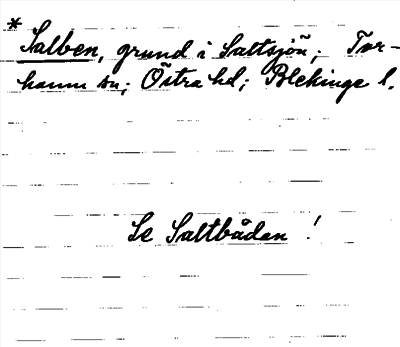 * Salben, grund i Saltsjön; Tor-
hamn sn; Östra hd; Blekinge l.
Se Saltbådan !